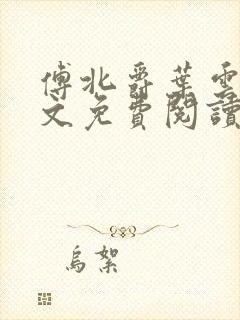 傅北爵葉雲
文免費閱讀
烏絮